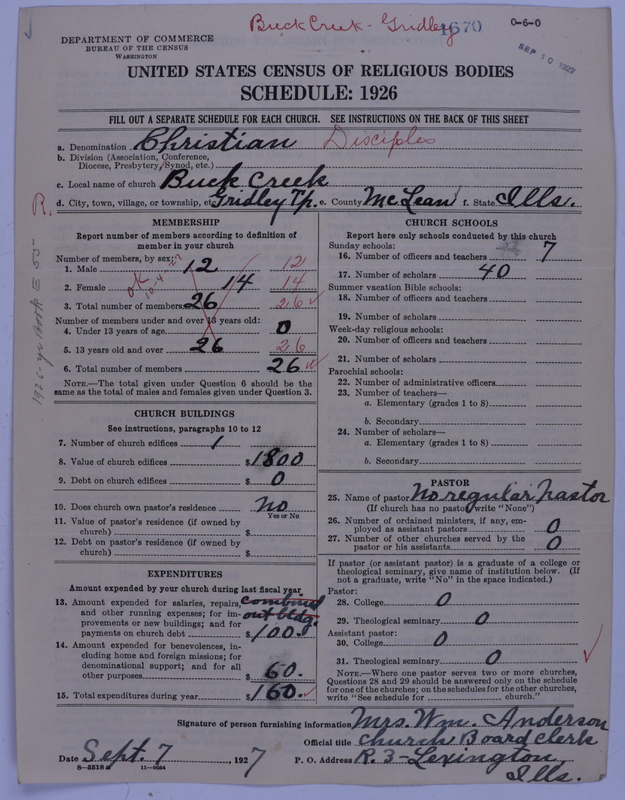 Buck Creek - Gridley
1670
0-6-0
SEP 10 1927
DEPARTMENT OF COMMERCE
BUREAU OF THE CENSUS
WASHINGTON
UNITED STATES CENSUS OF RELIGIOUS BODIES
SCHEDULE: 1926
FILL OUT A SEPARATE SCHEDULE FOR EACH CHURCH. SEE INSTRUCTIONS ON THE BACK OF THIS SHEET
a. Denomination Christian Disciples
b. Division (Association, Conference,
Diocese, Presbytery, Synod, etc.)
c. Local name of church Buck Creek
d. City, town, village, or township, etc. Gridley Tp. e. County McLean f. State Ills.
R.
MEMBERSHIP
Report number of members according to definition of
member in your church
Number of members, by sex:
1. Male 12 12
2. Female 14 14
ok
3. Total number of members 26 26
Number of members under and over 13 years old:
4. Under 13 years of age 0
5. 13 years old and over 26 26
6. Total number of members 26
NOTE.—The total given under Question 6 should be the
same as the total of males and females given under Question 3.
CHURCH BUILDINGS
See instructions, paragraphs 10 to 12
7. Number of church edifices 1
8. Value of church edifices $1800
9. Debt on church edifices $ 0
10. Does church own pastor's residence No
Yes or No
11. Value of pastor's residence (if owned by
church) $
12. Debt on pastor's residence (if owned by
church) $
EXPENDITURES
Amount expended by your church during last fiscal year
13. Amount expended for salaries, repairs, combined
and other running expenses; for im- out bldg.
provements or new buildings; and for
payments on church debt $100.
14. Amount expended for benevolences, in-
cluding home and foreign missions; for
denominational support; and for all
other purposes $ 60.
15. Total expenditures during year $160.
CHURCH SCHOOLS
Report here only schools conducted by this church
Sunday schools:
16. Number of officers and teachers 7
17. Number of scholars 40
Summer vacation Bible schools:
18. Number of officers and teachers
19. Number of scholars
Week-day religious schools:
20. Number of officers and teachers
21. Number of scholars
Parochial schools:
22. Number of administrative officers
23. Number of teachers—
a. Elementary (grades 1 to 8)
b. Secondary
24. Number of scholars—
a. Elementary (grades 1 to 8)
b. Secondary
PASTOR
25. Name of pastor No regular Pastor
(If church has no pastor, write "None")
26. Number of ordained ministers, if any, em-
ployed as assistant pastors 0
27. Number of other churches served by the
pastor or his assistants 0
If pastor (or assistant pastor) is a graduate of a college or
theological seminary, give name of institution below. (If
not a graduate, write "No" in the space indicated.)
Pastor:
28. College 0
29. Theological seminary 0
Assistant pastor:
30. College 0
31. Theological seminary 0
NOTE.—Where one pastor serves two or more churches,
Questions 28 and 29 should be answered only on the schedule
for one of the churches; on the schedules for the other churches,
write "See schedule for church."
Signature of person furnishing information Mrs. Wm. Anderson
Official title Church Board Clerk
Date Sept. 7 1927 P. O. Address R. 3 - Lexington
Ills.